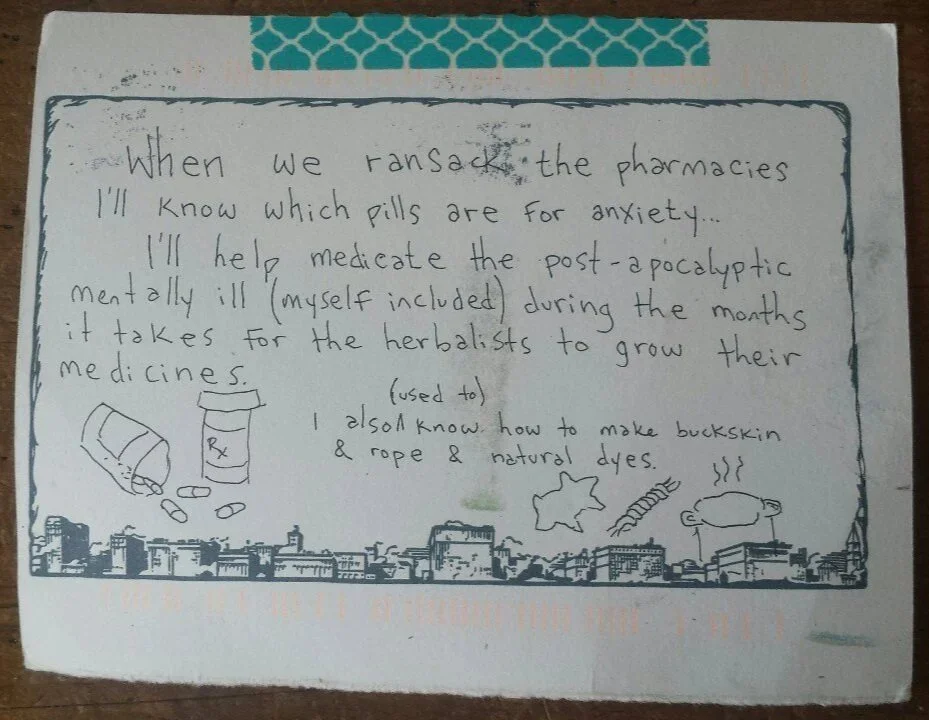 When we ransack the pharmacies
I'll know which pills are for anxiety...
I'll help medicate the post-apocalyptic
mentally ill (myself included) during the months
it takes for the herbalists to grow their
medicines.
(used to)
I also ^ know how to make buckskin
& rope & natural dyes.
Rx